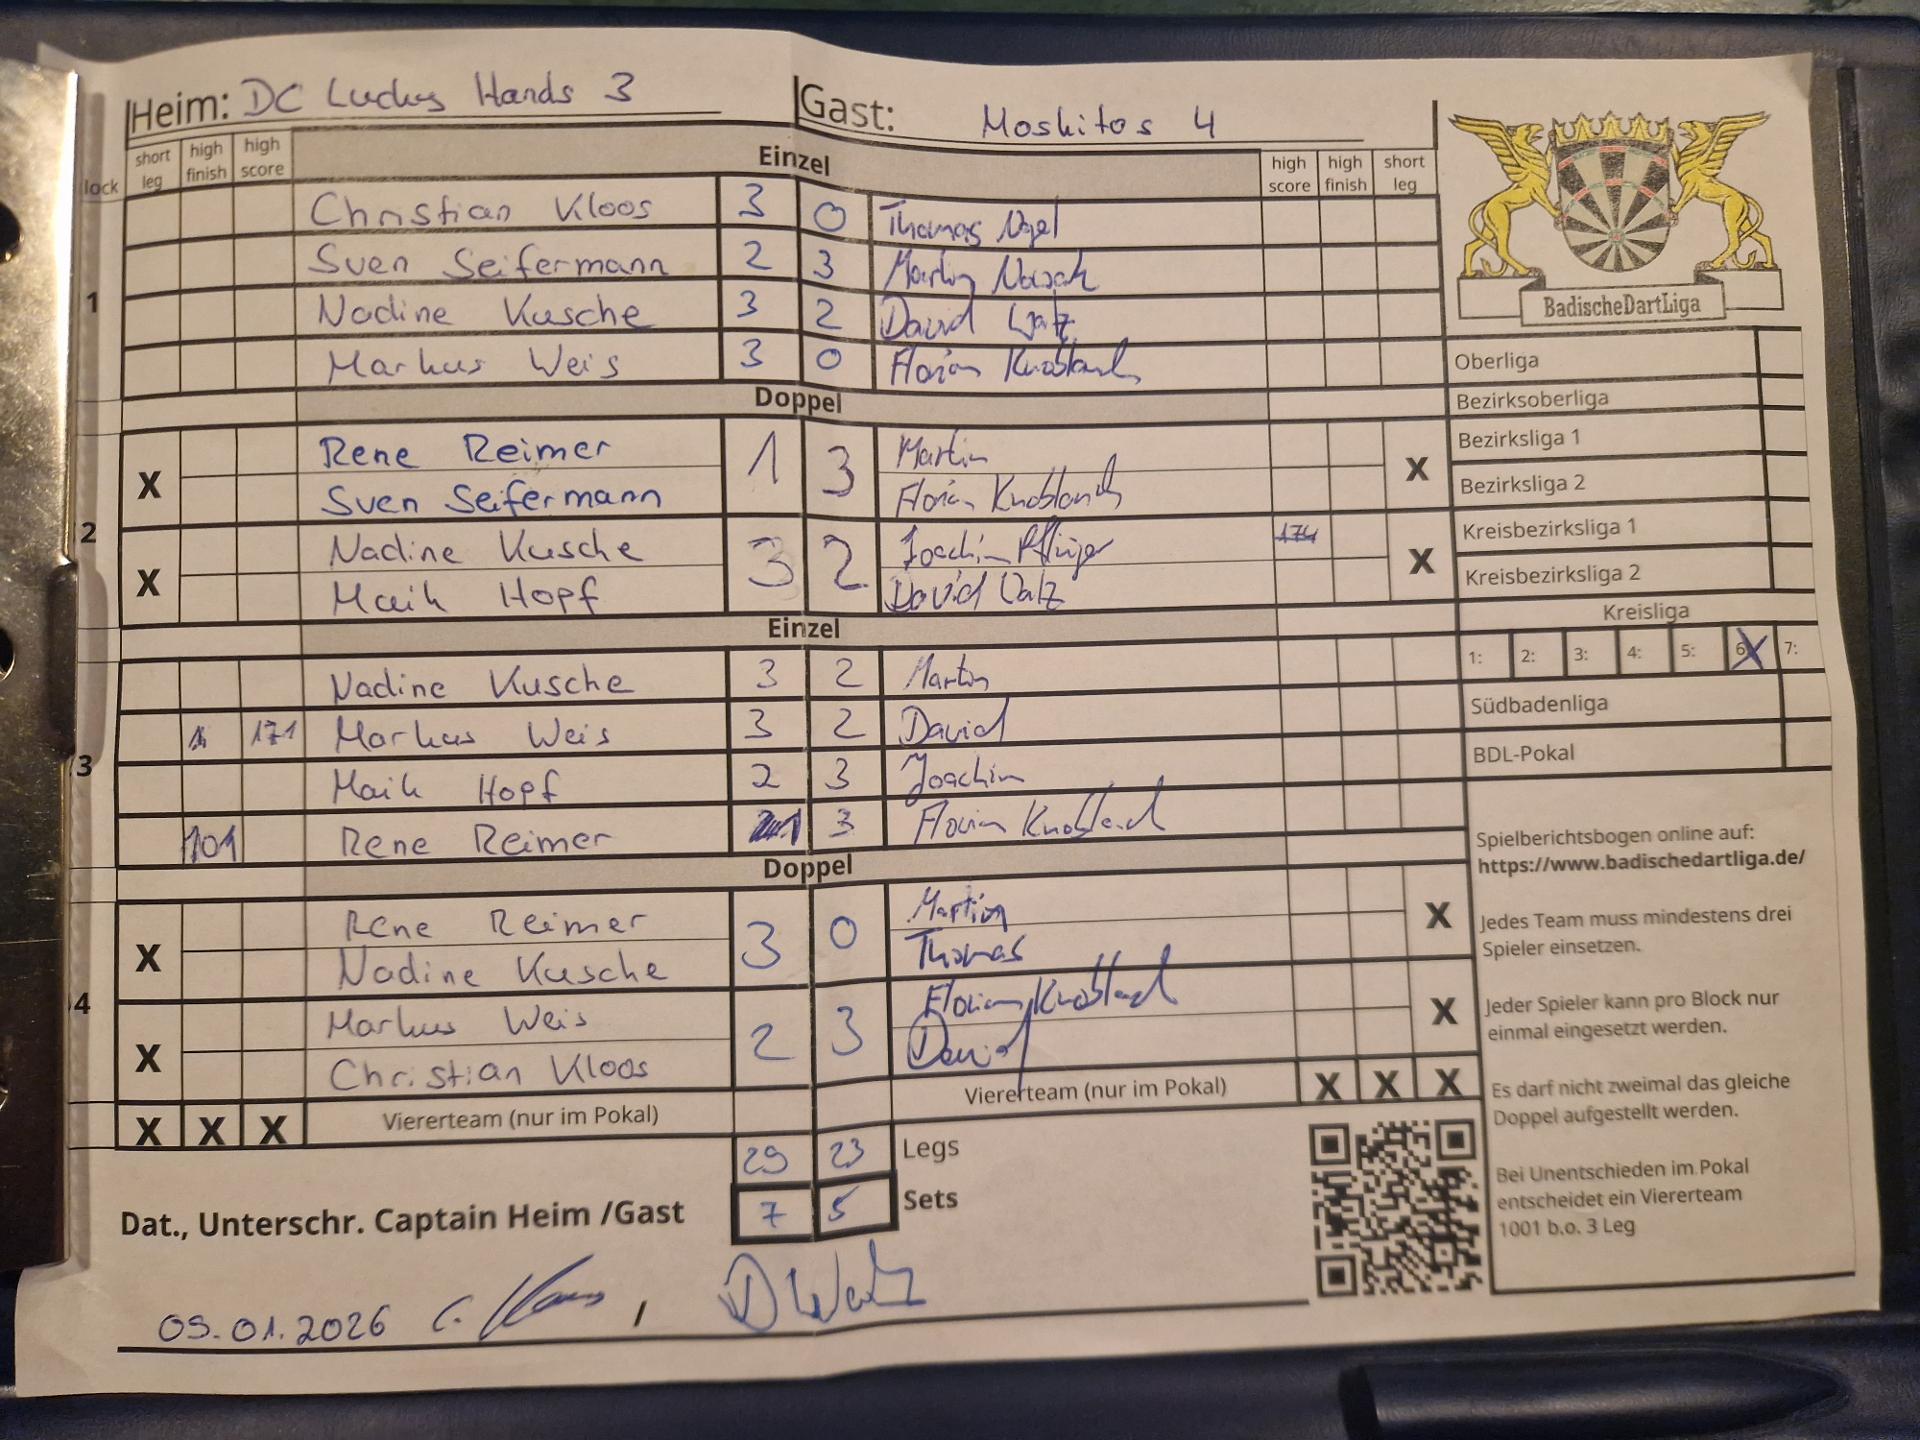 Heim: DC Luckys Hands 3 Gast: Moskitos 4
lock short leg high finish high score Einzel high score high finish short leg
1
Christian Kloos 3 0 Thomas
Sven Seifermann 2 3 Martin
Nadine Kusche 3 2 David Walz
Markus Weis 3 0 Florian Knobloch
Doppel
2
X Rene Reimer 1 3 Martin X
Sven Seifermann Florian Knobloch
X Nadine Kusche 3 2 Joachim 174 X
Maik Hopf David Walz
Einzel
3
Nadine Kusche 3 2 Martin
171 Markus Weis 3 2 David
Maik Hopf 2 3 Joachim
101 Rene Reimer 1 3 Florian Knobloch
Doppel
4
X Rene Reimer 3 0 Martin X
Nadine Kusche Thomas
X Markus Weis 2 3 Florian Knobloch X
Christian Kloos David
X X X Viererteam (nur im Pokal) Viererteam (nur im Pokal) X X X
29 23 Legs
7 5 Sets
Dat., Unterschr. Captain Heim /Gast
09.01.2026 C. Kloos , D Walz
BadischeDartLiga
Oberliga
Bezirksoberliga
Bezirksliga 1
Bezirksliga 2
Kreisbezirksliga 1
Kreisbezirksliga 2
Kreisliga
1: 2: 3: 4: 5: 6: X 7:
Südbadenliga
BDL-Pokal
Spielberichtsbogen online auf:
https://www.badischedartliga.de/
Jedes Team muss mindestens drei
Spieler einsetzen.
Jeder Spieler kann pro Block nur
einmal eingesetzt werden.
Es darf nicht zweimal das gleiche
Doppel aufgestellt werden.
Bei Unentschieden im Pokal
entscheidet ein Viererteam
1001 b.o. 3 Leg